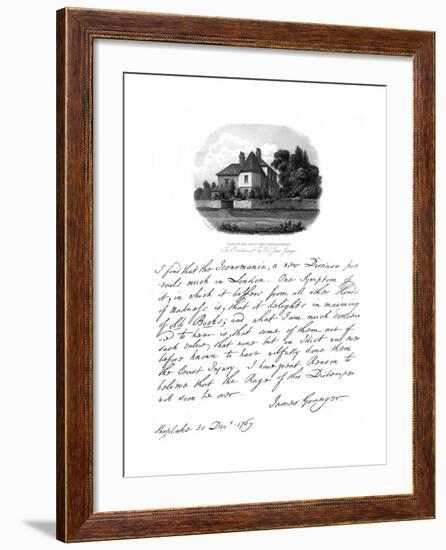 The Residence of the Rev.d James Granger.
I find that the Iconomania, a new Disease pre
vails much in London. One Symptom of
it, in which it differs from all other Kinds
of Madness is, that it delights in maiming
of old Books; and what I am much concern
ed to hear is, that some of them are of
such value, that none but an Idiot was ever
before known to have wilfully done them
the least Injury. I have great Reason to
believe that the Rage of this Distemper
will soon be over.
James Granger
Shiplake 30 Decr. 1769